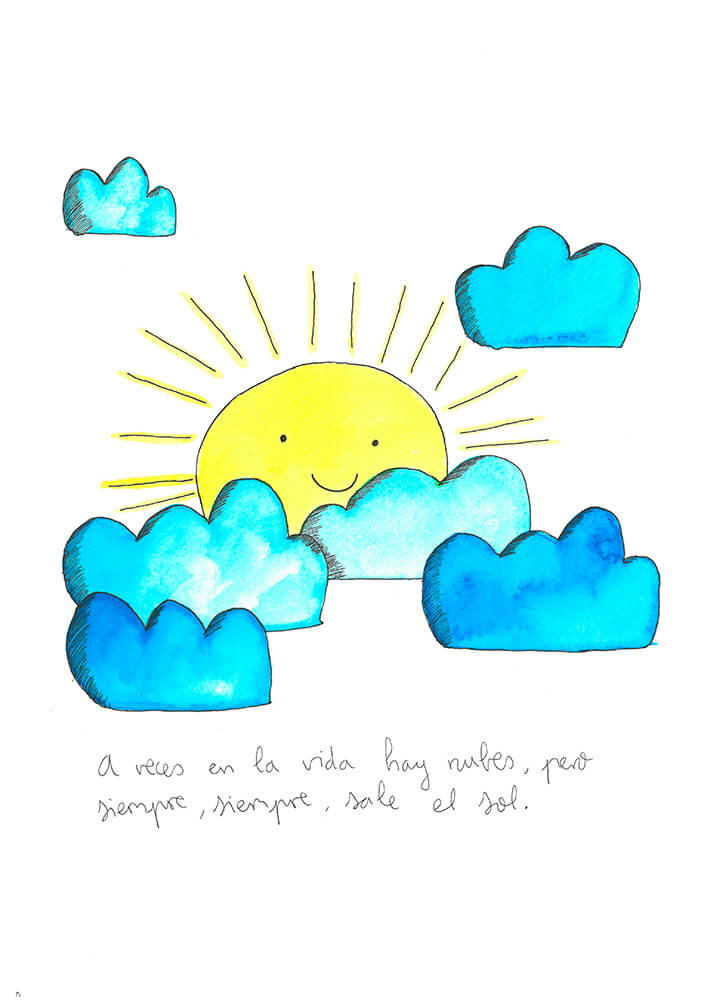 A veces en la vida hay nubes, pero
siempre, siempre, sale el sol.